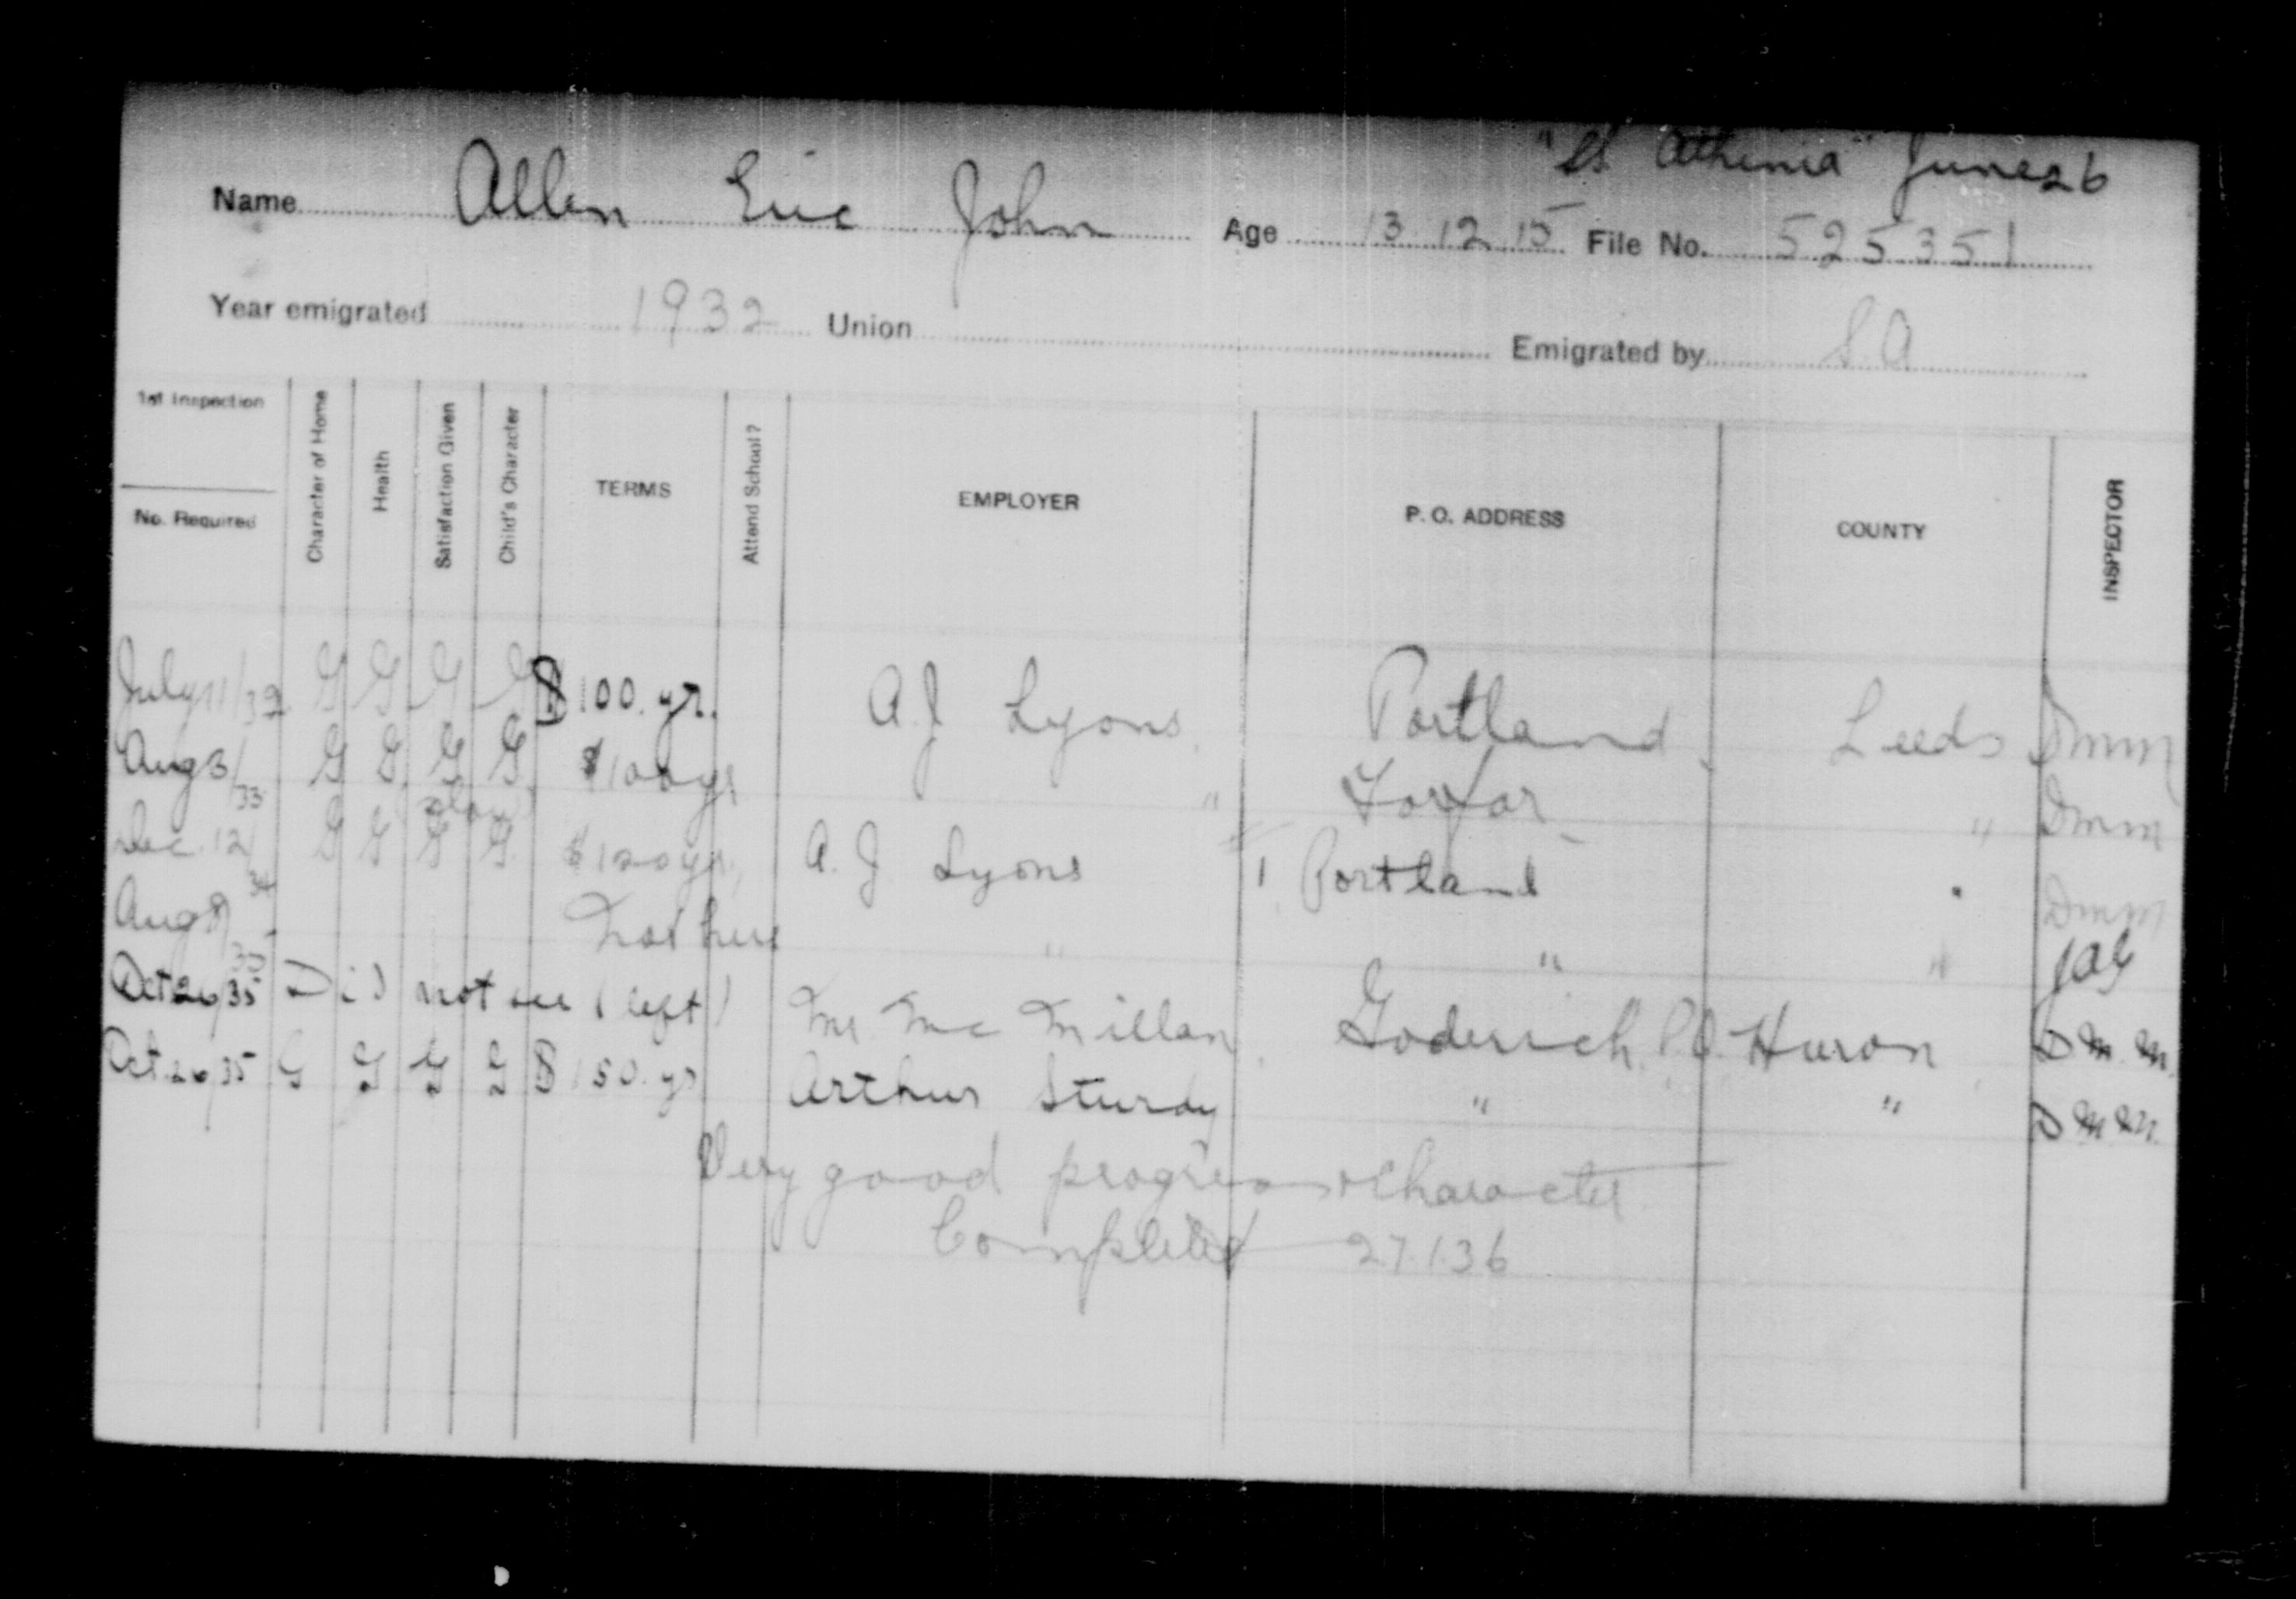 "SS Athenia" June 26
Name Allen Eric John Age 13.12.15 File No. 525351
Year emigrated 1932 Union Emigrated by S.A
1st Inspection
No. Required
Character of Home
Health
Satisfaction Given
Child's Character
TERMS
Attend School?
EMPLOYER
P. O. ADDRESS
COUNTY
INSPECTOR
July 11/32 G G G G $100. yr. A.J Lyons Portland Leeds Dmm
Aug 3/33 G G G G $100 yr " Forfar " Dmm
slow
Dec. 12/34 G G G G $120 yr, A. J Lyons Portland " Dmm
Aug 9/35 Not here " " "
Oct 26/35 Did not see (left) Mr. McMillan Goderich P.O. Huron D m m.
Oct. 26/35 G G G G $150. yr Arthur Sturdy " " D m m.
Very good progress & Character
Completed 27.1.36